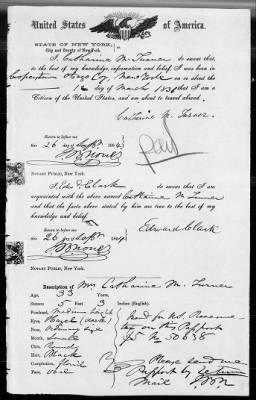 United States of America.
STATE OF NEW YORK,
City and County of New York.
I, Catharine M. Turner do swear that
to the best of my knowledge, information and belief I was born in
Cooperstown Otsego Coy, New York on or about the
day of March 1831 that I am a
Citizen of the United States, and am about to travel abroad.
Catharine M. Turner.
Sworn to before me
this 26 day of Sept 1864
paid
NOTARY PUBLIC, New York.
I, Edwd Clark do swear that I am
acquainted with the above named Catharine M. Turner
and that the facts above stated by him are true to the best of my
knowledge and belief.
Edward Clark
Sworn to before me
this 26 day of Sept 1864
NOTARY PUBLIC, New York.
Description of Mrs Catharine M. Turner
Age, 33 Years
Stature 5 Feet 3 Inches (English).
Forehead, Medium
Eyes, Hazel (dark)
Nose, Ordinary size
Mouth,
Chin,
Hair, Black
Complexion, florid
Face, Oval
on this Passport
No 50638
Please send me
Passport by return
Mail